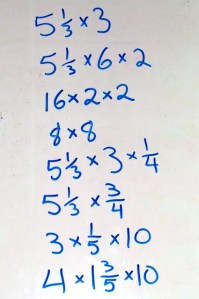 5 1/3 × 3
5 1/3 × 6 × 2
16 × 2 × 2
8 × 8
5 1/3 × 3 × 1/4
5 1/3 × 3/4
3 × 1/5 × 10
4 × 1 3/5 × 10